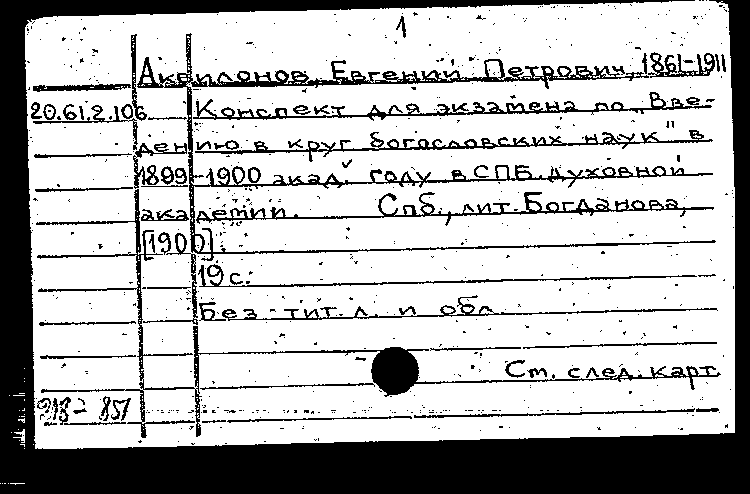 1
Аквилонов, Евгений Петрович, 1861-1911
20.61.2.106 Конспект для экзамена по „Вве-
дению в круг богословских наук" в
1899-1900 акад. году в СПБ. духовной
академии. Спб., лит. Богданова,
[1900].
19 с.
Без тит. л. и обл.
См. след. карт.
318-851